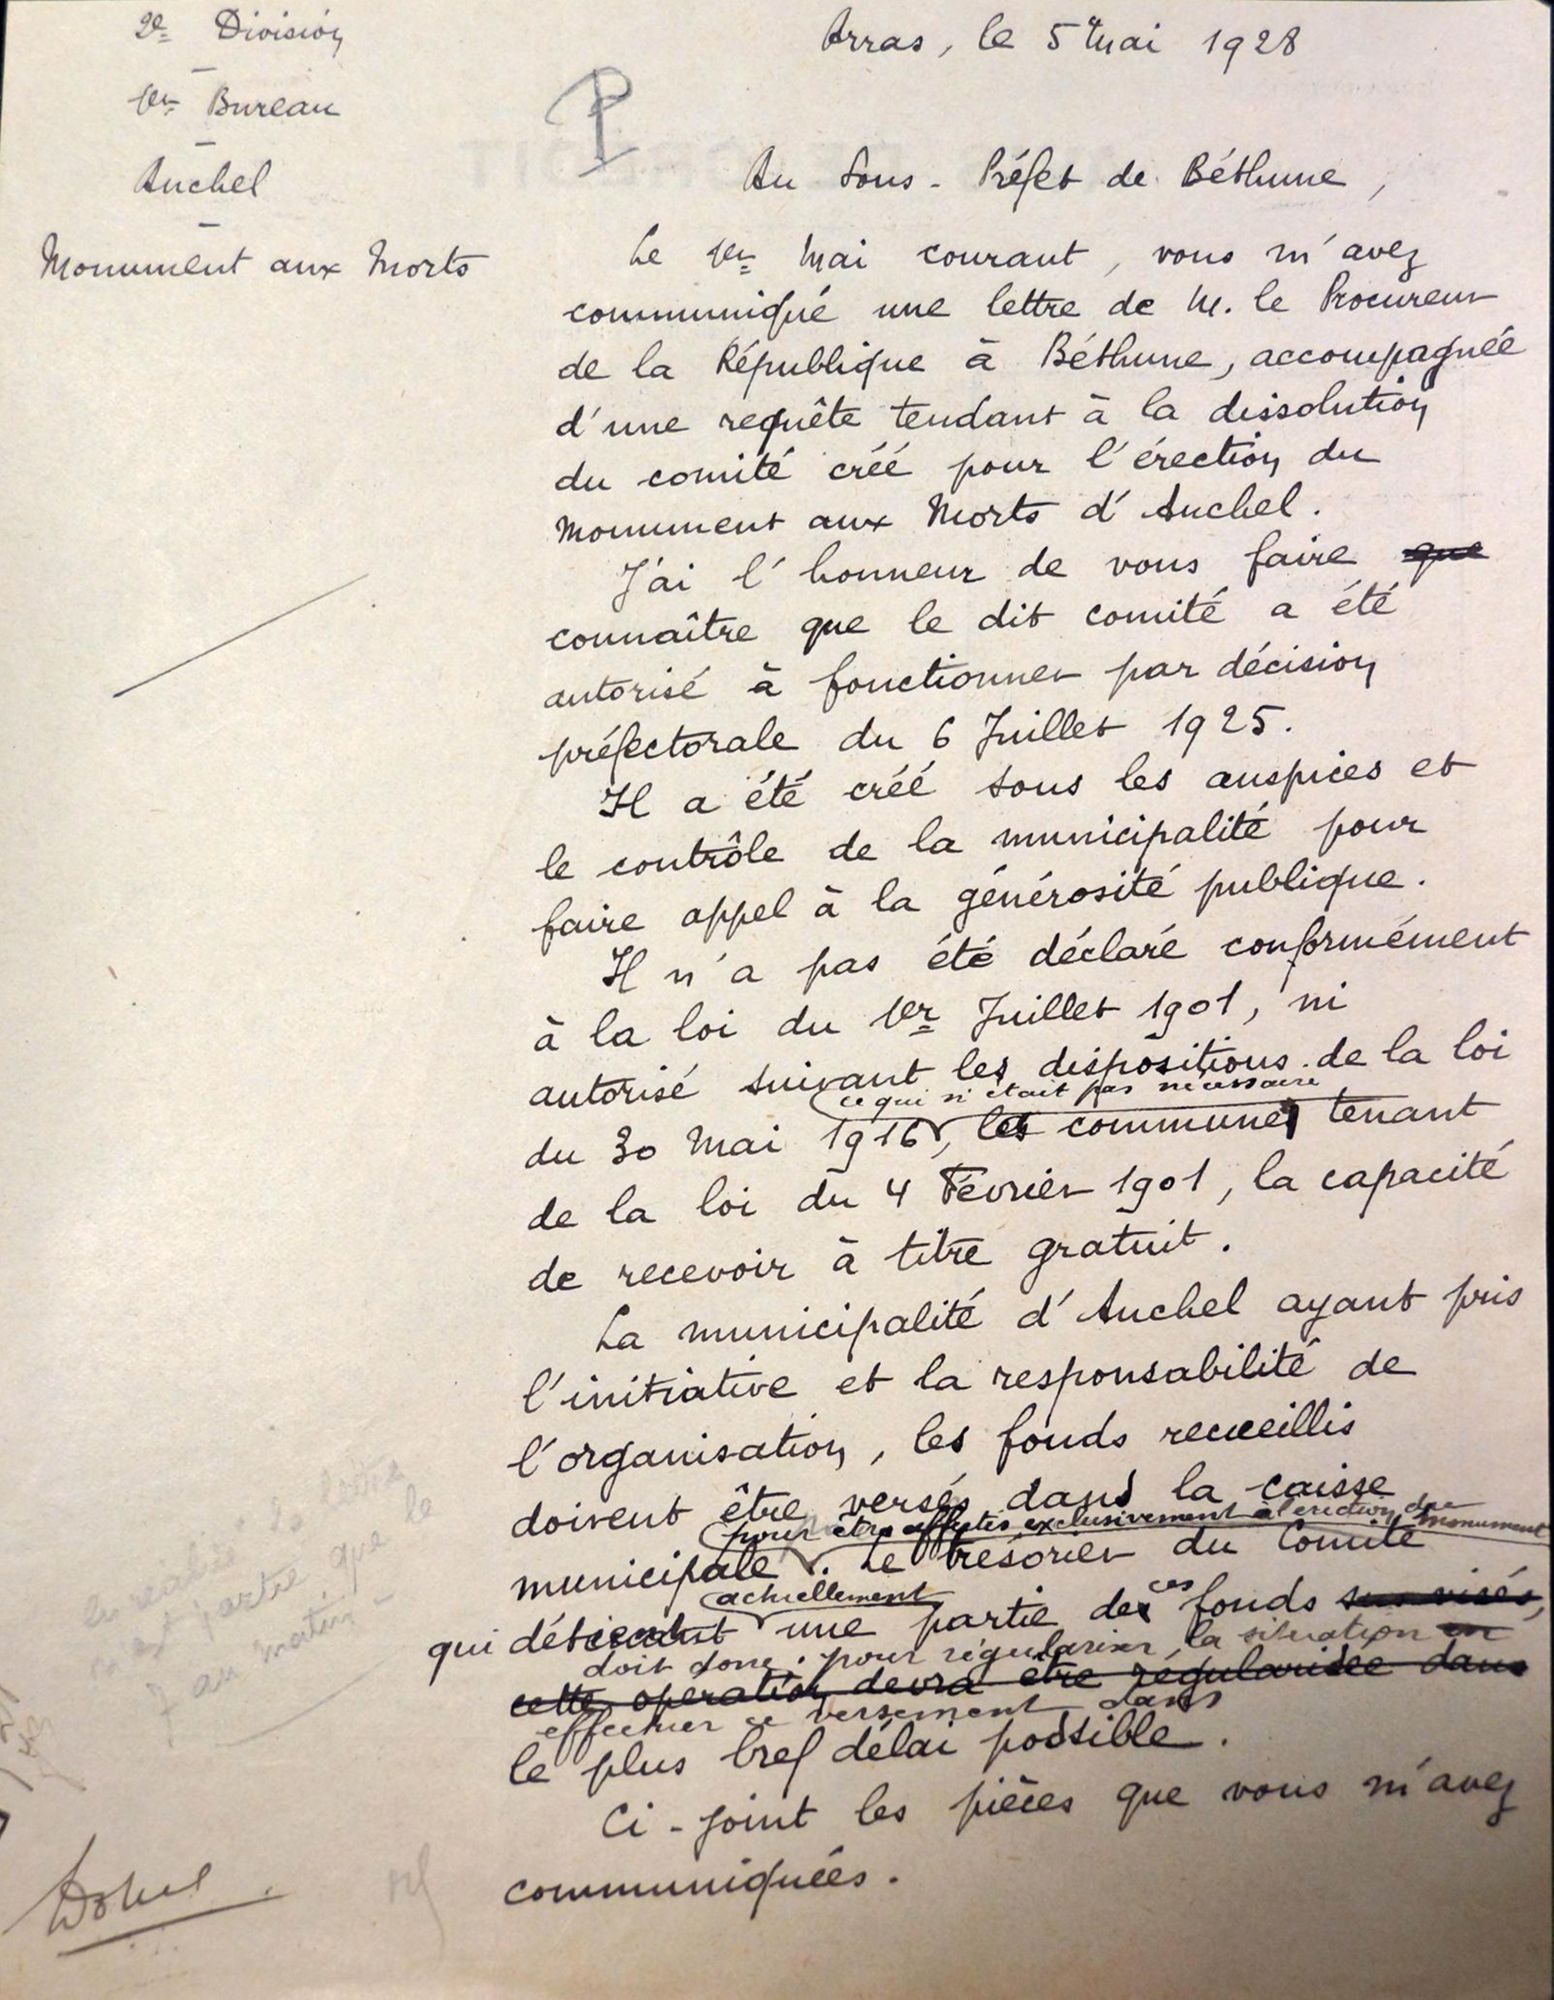 2e Division
1er Bureau
Auchel
Monument aux Morts
Arras, le 5 Mai 1928
P
Au Sous-Préfet de Béthune,
Le 1er Mai courant, vous m'avez
communiqué une lettre de M. le Procureur
de la République à Béthune, accompagnée
d'une requête tendant à la dissolution
du comité créé pour l'érection du
Monument aux Morts d'Auchel.
J'ai l'honneur de vous faire que
connaître que le dit comité a été
autorisé à fonctionner par décision
préfectorale du 6 Juillet 1925.
Il a été créé sous les auspices et
le contrôle de la municipalité pour
faire appel à la générosité publique.
Il n'a pas été déclaré conformément
à la loi du 1er Juillet 1901, ni
autorisé suivant les dispositions de la loi
ce qui n'était pas nécessaire
du 30 Mai 1916, les communes tenant
de la loi du 4 Février 1901, la capacité
de recevoir à titre gratuit.
La municipalité d'Auchel ayant pris
l'initiative et la responsabilité de
l'organisation, les fonds recueillis
doivent être versés dans la caisse
pour être affectés exclusivement à l'érection du monument
municipale. Le trésorier du Comité
actuellement ces
qui détient une partie des fonds sus visés,
doit donc, pour régulariser la situation en
cette opération devra être régularisée dans
effectuer ce versement dans
le plus bref délai possible.
Ci-joint les pièces que vous m'avez
communiquées.
la lettre
n'est partie que le
7 au matin